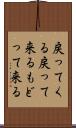 戻ってく
る戻って
来るもど
って来る